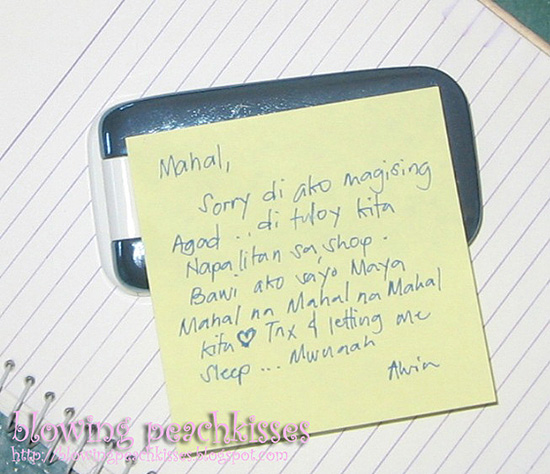 Mahal,
Sorry di ako magising
Agad .. di tuloy kita
Napalitan sa shop.
Bawi ako sa'yo Maya
Mahal na Mahal na Mahal
kita ♡ Tnx 4 letting me
sleep ... Mwuaah
Alvin
blowing peachkisses
http://blowingpeachkisses.blogspot.com